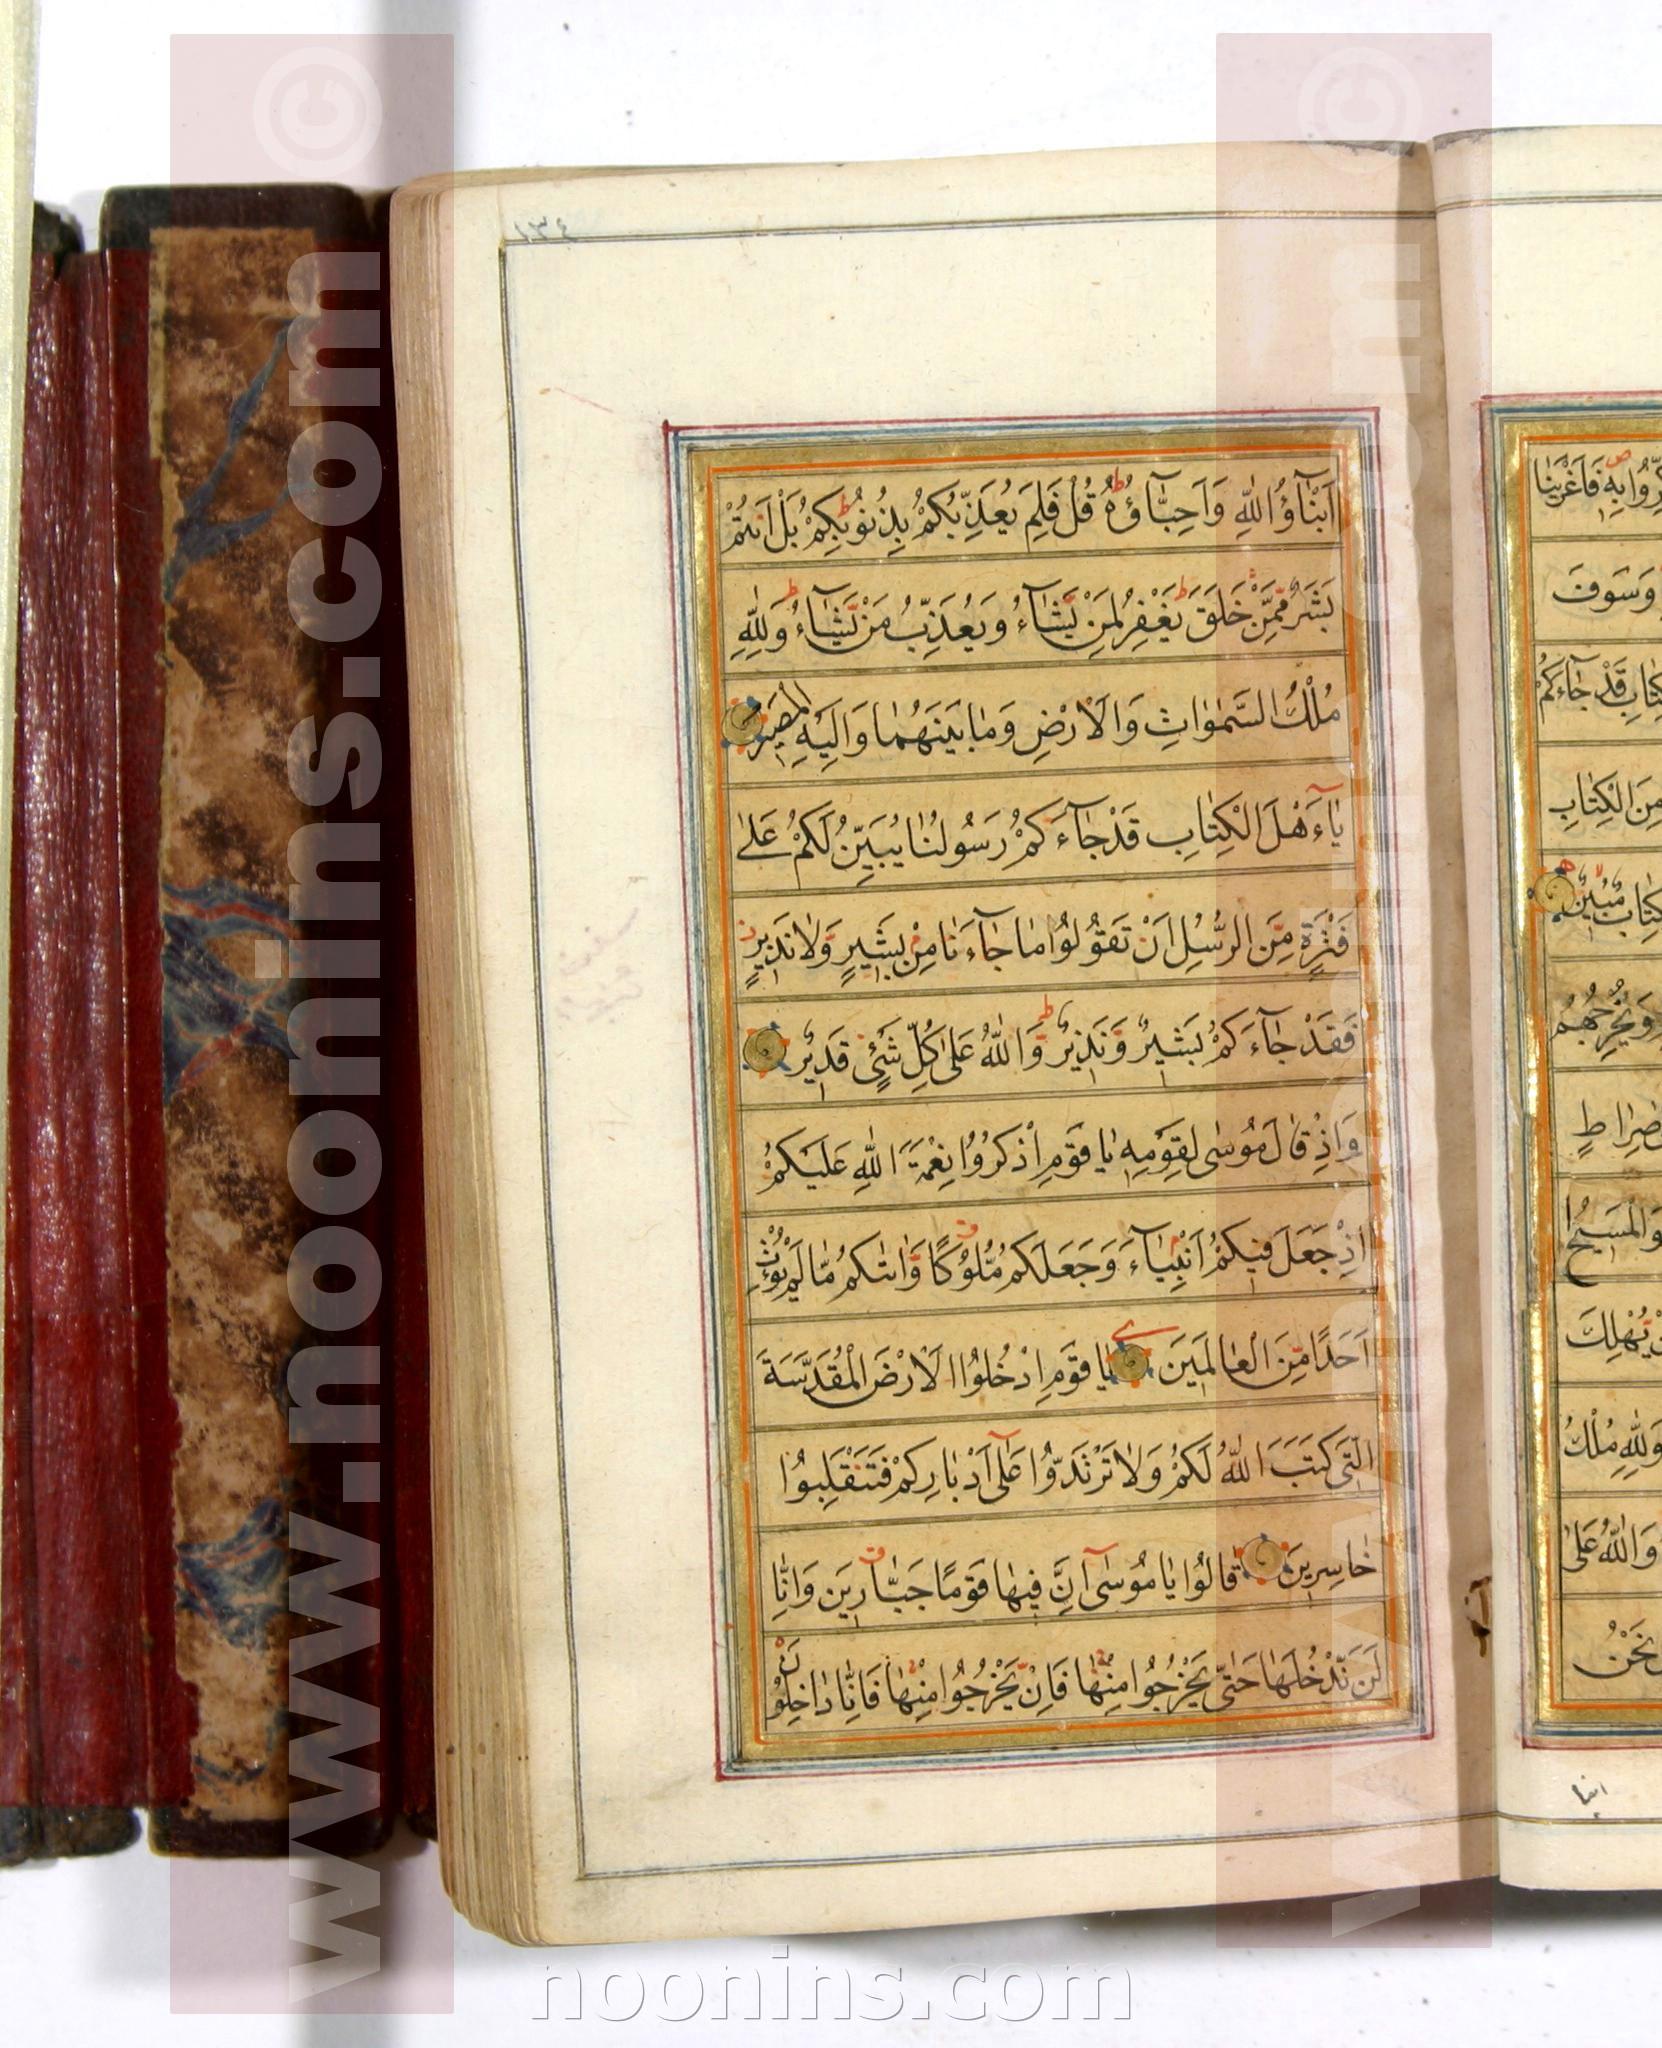 ١٣٤
اَبْنٰاۤؤُا اللّٰهِ وَاَحِبّٰاۤؤُهُ قُلْ فَلِمَ يُعَذِّبُكُمْ بِذُنُوبِكُمْ بَلْ اَنْتُمْ
بَشَرٌ مِمَّنْ خَلَقَ يَغْفِرُ لِمَنْ يَشٰاۤءُ وَيُعَذِّبُ مَنْ يَشٰاۤءُ وَلِلّٰهِ
مُلْكُ السَّمٰوٰاتِ وَالْاَرْضِ وَمٰا بَيْنَهُمٰا وَاِلَيْهِ الْمَصِيرُ
يٰاۤءَهْلَ الْكِتٰابِ قَدْ جٰاۤءَكُمْ رَسُولُنٰا يُبَيِّنُ لَكُمْ عَلىٰ
فَتْرَةٍ مِنَ الرُّسُلِ اَنْ تَقُولُوا مٰا جٰاۤءَنٰا مِنْ بَشِيرٍ وَلٰا نَذِيرٍ
فَقَدْ جٰاۤءَكُمْ بَشِيرٌ وَنَذِيرٌ وَاللّٰهُ عَلىٰ كُلِّ شَيْءٍ قَدِيرٌ
وَاِذْ قٰالَ مُوسىٰ لِقَوْمِهِ يٰا قَوْمِ اذْكُرُوا نِعْمَةَ اللّٰهِ عَلَيْكُمْ
اِذْ جَعَلَ فِيكُمْ اَنْبِيٰاۤءَ وَجَعَلَكُمْ مُلُوكًا وَاٰتٰىكُمْ مٰا لَمْ يُؤْتِ
اَحَدًا مِنَ الْعٰالَمِينَ يٰا قَوْمِ ادْخُلُوا الْاَرْضَ الْمُقَدَّسَةَ
الَّتِي كَتَبَ اللّٰهُ لَكُمْ وَلٰا تَرْتَدُّوا عَلىٰۤ اَدْبٰارِكُمْ فَتَنْقَلِبُوا
خٰاسِرِينَ قٰالُوا يٰا مُوسىٰۤ اِنَّ فِيهٰا قَوْمًا جَبّٰارِينَ وَاِنّٰا
لَنْ نَدْخُلَهٰا حَتّىٰ يَخْرُجُوا مِنْهٰا فَاِنْ يَخْرُجُوا مِنْهٰا فَاِنّٰا دٰاخِلُونَ
فَاَغْرَيْنٰا
وَسَوْفَ
قَدْ جٰاۤءَكُمْ
مِنَ الْكِتٰابِ
مُبِينٌ
وَيُخْرِجُهُمْ
صِرٰاطٍ
الْمَسِيحُ
يُهْلِكَ
وَلِلّٰهِ مُلْكُ
وَاللّٰهُ عَلىٰ
نَحْنُ
ابنا
www.noonins.com ©
www.noonins.com ©
noonins.com